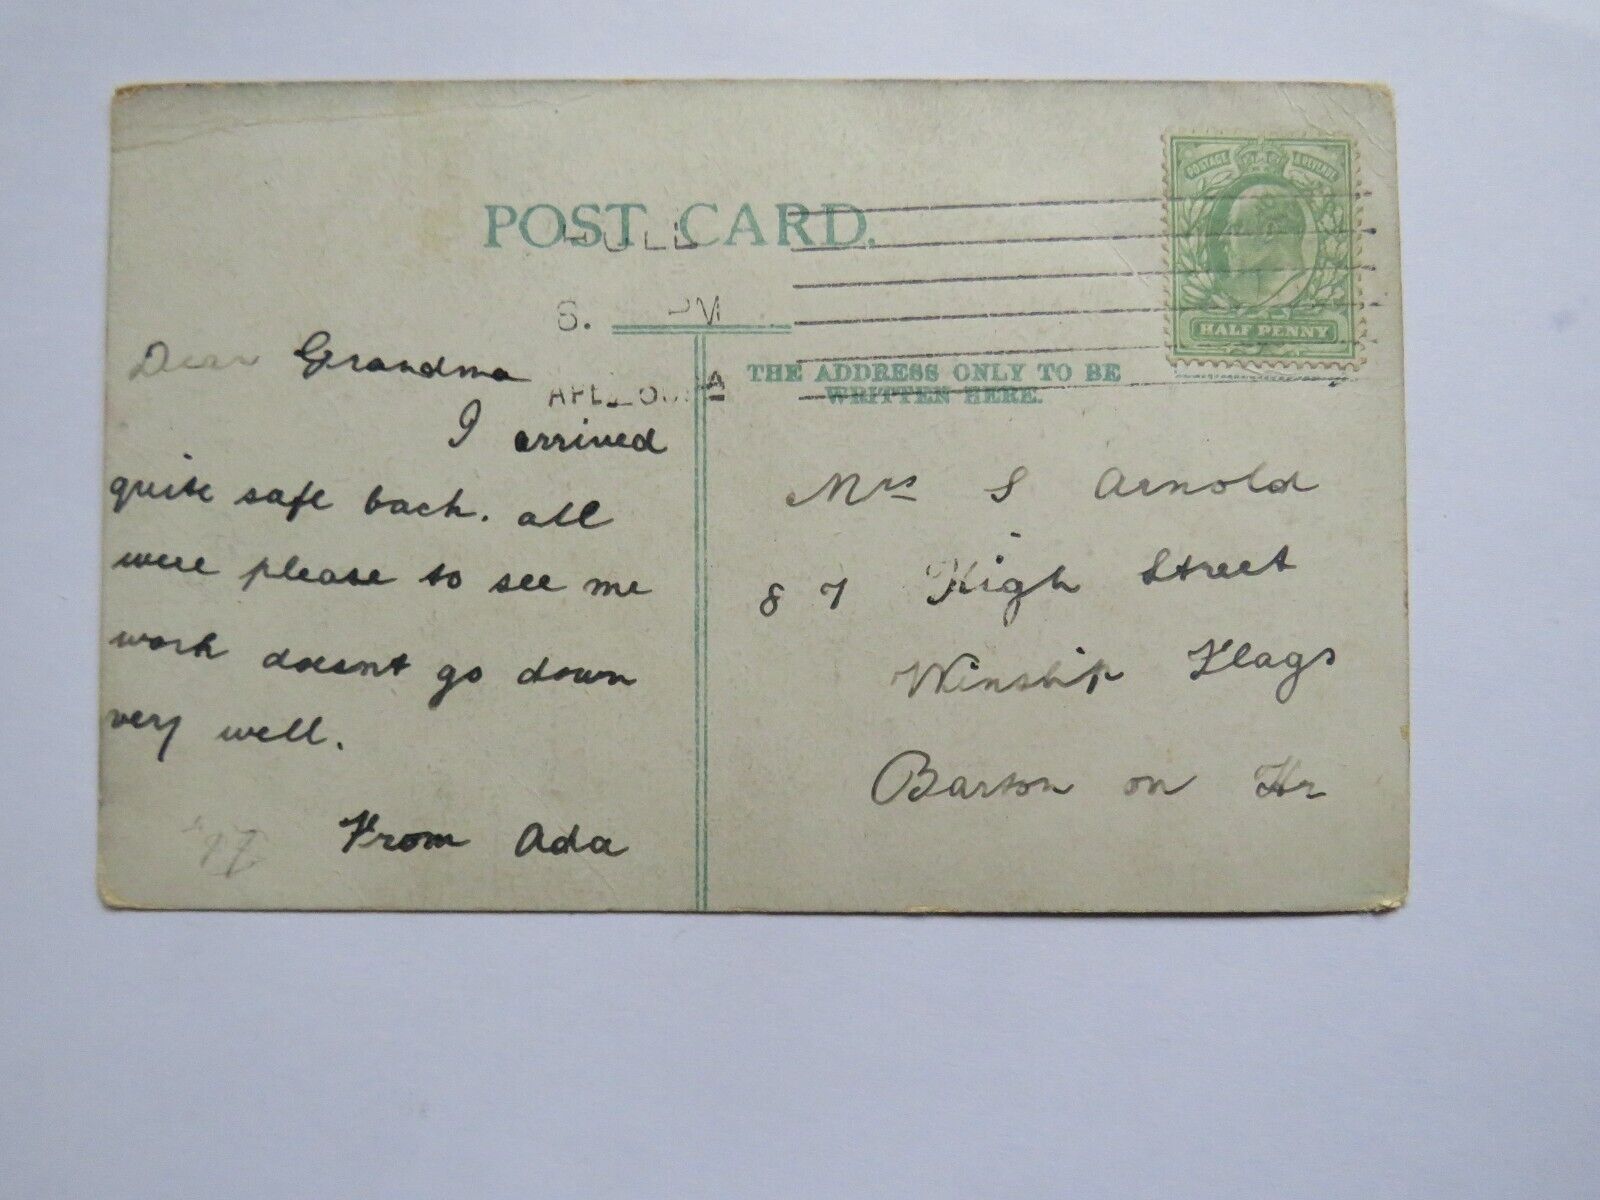 POST CARD.
HULL
PM
POSTAGE REVENUE
HALF PENNY
THE ADDRESS ONLY TO BE
WRITTEN HERE.
Dear Grandma
I arrived
quite safe back. all
were please to see me
work doesnt go down
very well.
From Ada
Mrs S Arnold
87 High Street
Winship Flags
Barton on Hr